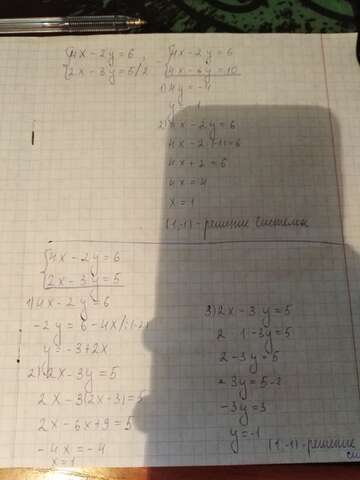 {4x-2y=6, {4x-2y=6
{2x-3y=5/2 {4x-6y=10
1) 4y=-4
y 1
2) 4x-2y=6
4x-2·(-1)=6
4x+2=6
4x=4
x=1
(1;-1)-решение системы
{4x-2y=6
{2x-3y=5
1) 4x-2y=6
-2y=6-4x/:(-2)
y=-3+2x
2) 2x-3y=5
2x-3(2x-3)=5
2x-6x+9=5
-4x=-4
x=1
3) 2x-3y=5
2 1-3y=5
2-3y=5
-3y=5-2
-3y=3
y=-1
(1;-1)-решение